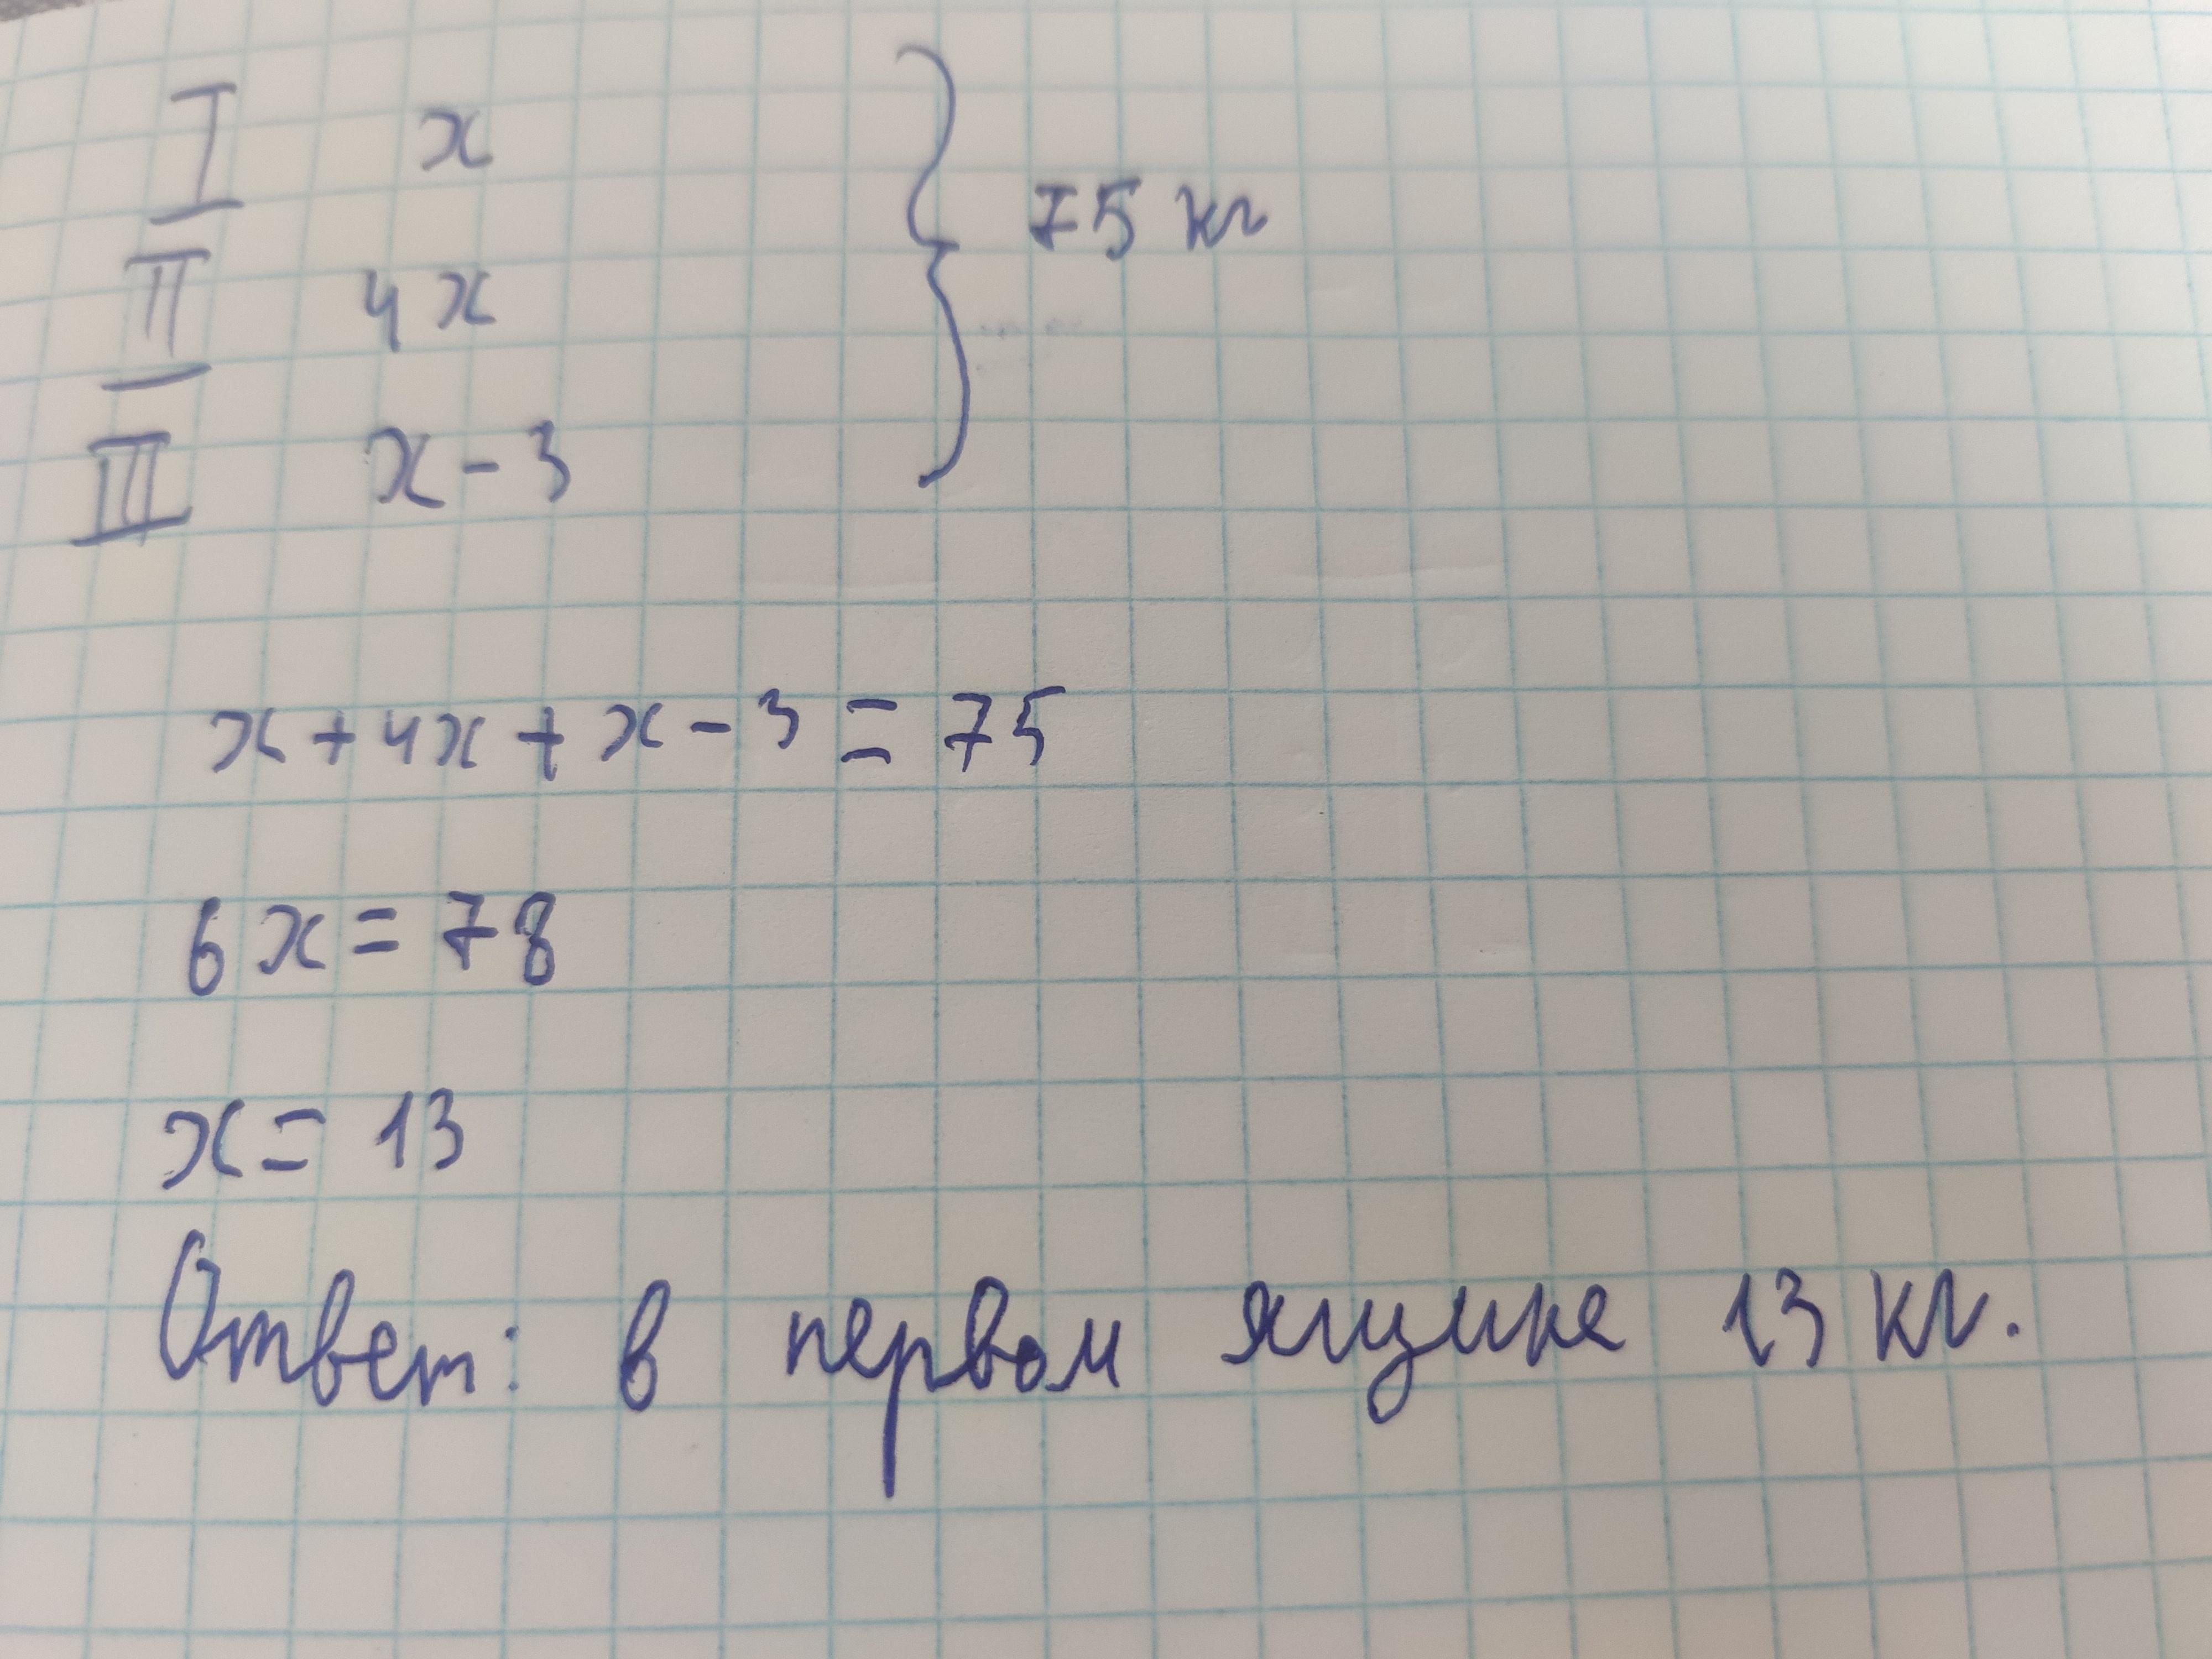 I x
II 4x
III x - 3
} 75 кг
x + 4x + x - 3 = 75
6x = 78
x = 13
Ответ: в первом ящике 13 кг.